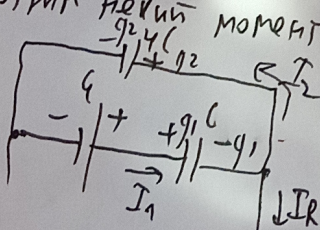 некий момент
-q2 4C + q2
I2
- ℰ + +q1 C -q1 -
I1
↓IR